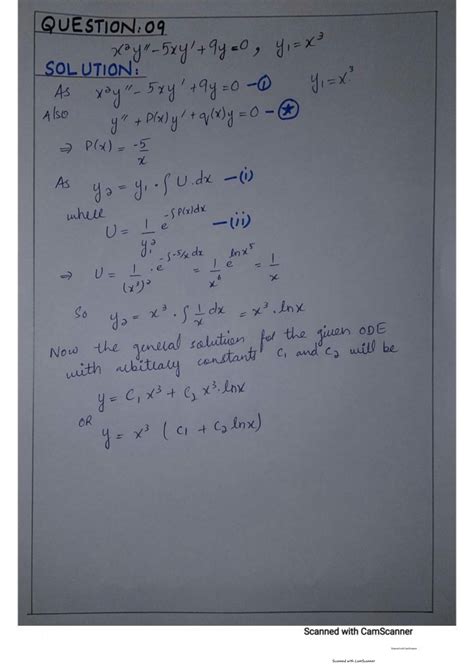 QUESTION:09
x²y''-5xy'+9y=0, y₁=x³
SOLUTION:
As x²y''-5xy'+9y=0 -(i) y₁=x³.
Also y''+P(x)y'+q(x)y=0 -(*)
⇒ P(x)=-5/x
As y₂=y₁.∫U.dx -(i)
where U=1/y₁² e^(-∫P(x)dx) -(ii)
⇒ U=1/(x³)².e^(-∫-5/x dx)=1/x⁶ e^(lnx⁵)=1/x
So y₂=x³.∫1/x dx=x³.lnx
Now the general solution for the given ODE
with arbitrary constants C₁ and C₂ will be
y=C₁x³+C₂x³.lnx
OR
y=x³(C₁+C₂lnx)
Scanned with CamScanner
Scanned with CamScanner
Scanned with CamScanner